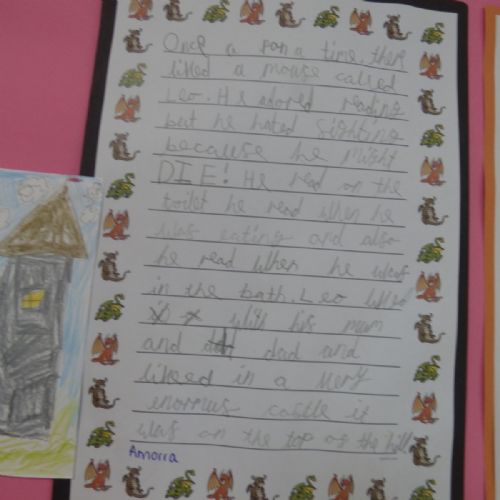 Once a pon a time, ther
lived a mouse called
Leo. He adored reading
but he hated fighting
because he might
DIE! He read on the
toilet he read when he
was eating and also
he read when he was
in the bath. Leo lived
with his mum
and dad and
lived in a very
enormus castle it
was on the top of the hill
Amorra